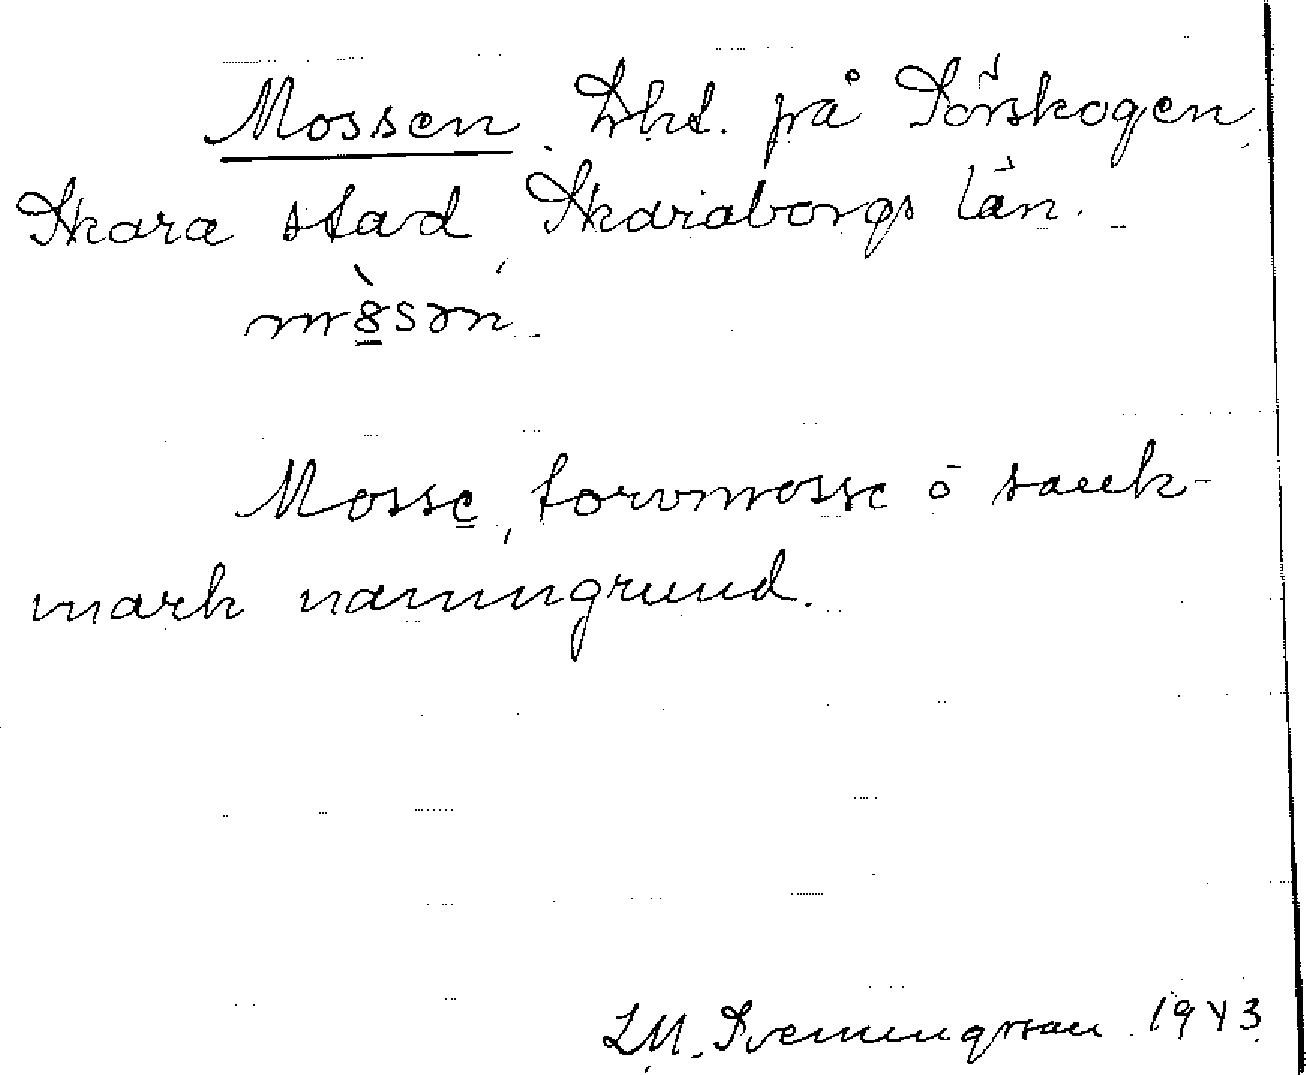 Mossen. Lht. på Sörskogen,
Skara stad, Skaraborgs län.
mò̱sən.
Mosse, torvmosse o sank-
mark namngrund.
LM. Svenungsson 1943